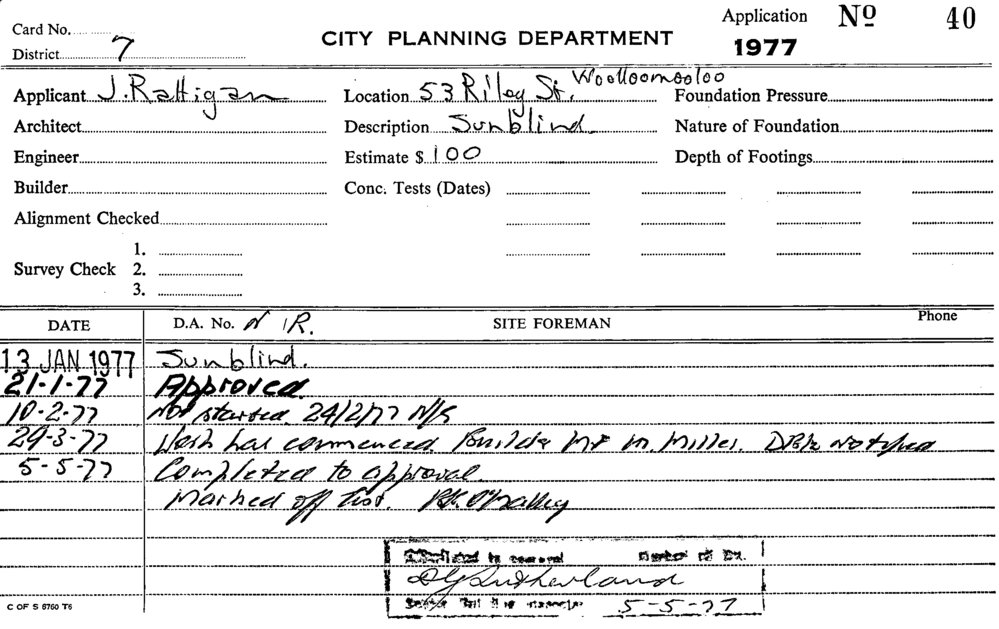 Card No.
District 7
CITY PLANNING DEPARTMENT
Application No 40
1977
Applicant J. Rattigan
Location 53 Riley St. Woolloomooloo
Foundation Pressure
Architect
Description Sunblind.
Nature of Foundation
Engineer
Estimate $ 100
Depth of Footings
Builder
Conc. Tests (Dates)
Alignment Checked
Survey Check 1.
2.
3.
DATE
D.A. No. N R.
SITE FOREMAN
Phone
13 JAN 1977 Sunblind.
21-1-77 Approved.
10-2-77 Not started. 24/2/77 N/S
29-3-77 Work has commenced. Builder Mr M. Miller. notified
5-5-77 Completed to approval.
Marked off list.
Sutherland
5-5-77
C OF S 6760 T6